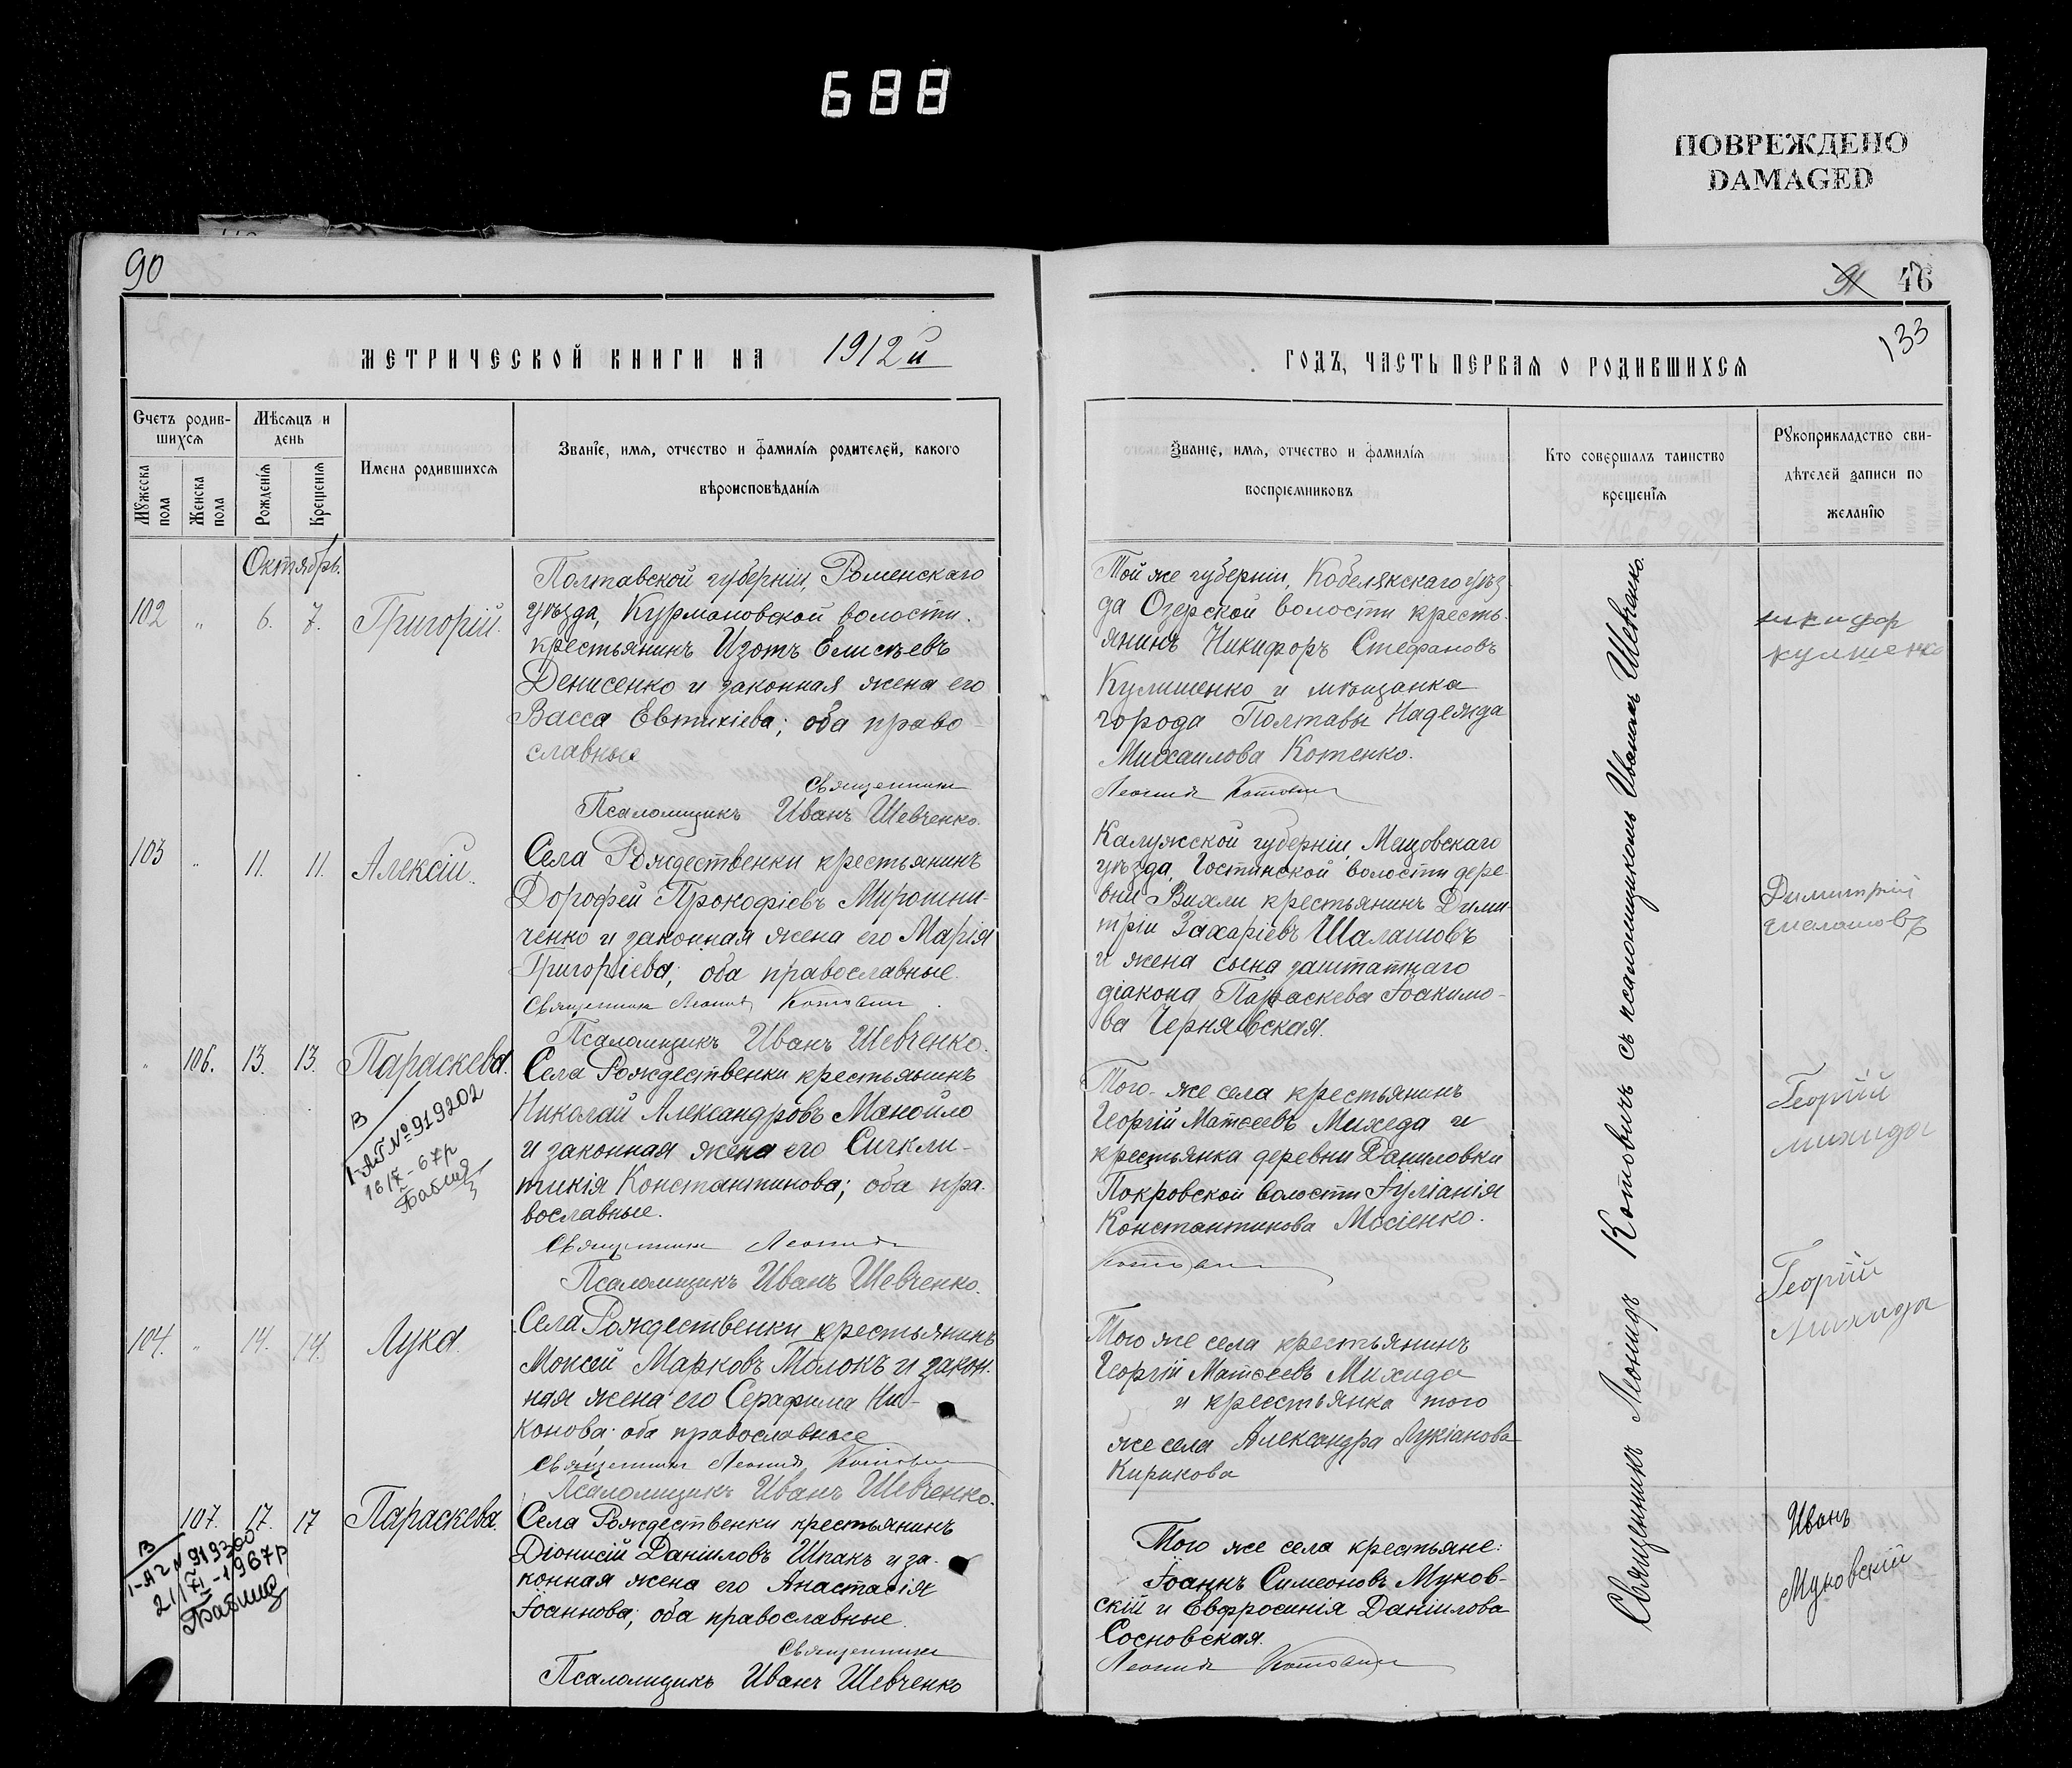 688
ПОВРЕЖДЕНО
DAMAGED
90
МЕТРИЧЕСКОЙ КНИГИ НА 1912й
Счетъ родив-
шихся
Мужеска
пола
Женска
пола
Мѣсяцъ и
день
Рожденія
Крещенія
Имена родившихся
Званіе, имя, отчество и фамилія родителей, какого
вѣроисповѣданія
Октябрь.
102 " 6. 7. Григорій.
Полтавской губерніи, Роменскаго
уѣзда, Курмановской волости
крестьянинъ Изотъ Елисѣевъ
Денисенко и законная жена его
Васса Евтихіева; оба право-
славные
Священникъ
Псаломщикъ Иванъ Шевченко.
103 " 11. 11. Алексій.
Села Рождественки крестьянинъ
Дорофей Прокофіевъ Мирошни-
ченко и законная жена его Марія
Григоріева; оба православные.
Священникъ Леонид Котович
Псаломщикъ Иванъ Шевченко.
" 106. 13. 13. Параскева.
В
I-АП №919202
16/X-67р
Села Рождественки крестьянинъ
Николай Александровъ Манойло
и законная жена его Сигкли-
тикія Константинова; оба пра-
вославные.
Священникъ Леонид
Псаломщикъ Иванъ Шевченко.
104. " 14. 14. Лука.
Села Рождественки крестьянинъ
Моисей Марковъ Молокъ и закон-
ная жена его Серафима Ни-
конова; оба православные
Священникъ Леонид Котович
Псаломщикъ Иванъ Шевченко.
107. 17. 17 Параскева.
В
21/XI-1967р
Села Рождественки крестьянинъ
Діонисій Даніиловъ Шпакъ и за-
конная жена его Анастасія
Іоаннова; оба православные.
Священникъ
Псаломщикъ Иванъ Шевченко
91 46
133
ГОДЪ, ЧАСТЬ ПЕРВАЯ О РОДИВШИХСЯ
Званіе, имя, отчество и фамилія
воспріемниковъ
Кто совершалъ таинство
крещенія
Рукоприкладство сви-
дѣтелей записи по
желанію
Той же губерніи, Кобелякскаго уѣз-
да Озерской волости кресть-
янинъ Никифоръ Стефановъ
Кулишенко и мѣщанка
города Полтавы Надежда
Михаилова Котенко.
Леонид Котович
никифор
кулишенко
Калужской губерніи, Мещовскаго
уѣзда, Гостинской волости дере-
вни Вихли крестьянинъ Дими-
трій Захаріевъ Шалашовъ
и жена сына заштатнаго
діакона Параскева Іоакимо-
ва Чернявская.
Димитрій
шелашовъ
Того-же села крестьянинъ
Георгій Матѳеевъ Михеда и
крестьянка деревни Даниловки
Покровской волости Іуліанія
Константинова Мосіенко.
Котович
Георгій
михида
Того же села крестьянинъ
Георгій Матѳеевъ Михида
и крестьянка того
же села Александра Лукіанова
Кирикова
Георгій
михида
Того же села крестьяне:
Іоаннъ Симеоновъ Муков-
скій и Евфросинія Даніилова
Сосновская.
Леонид Котович
Иванъ
Муковскій
Священникъ Леонидъ Котовичъ съ псаломщикомъ Иваномъ Шевченко.